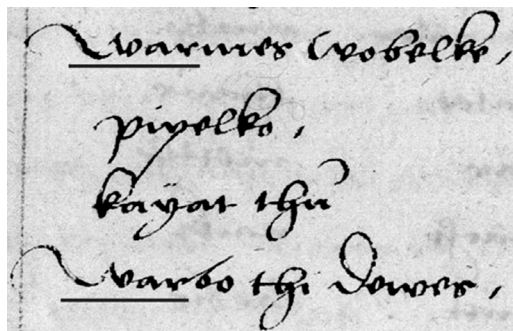 Warmes wobelke,
pipelko,
kayat thu
Warbo thi dewes,